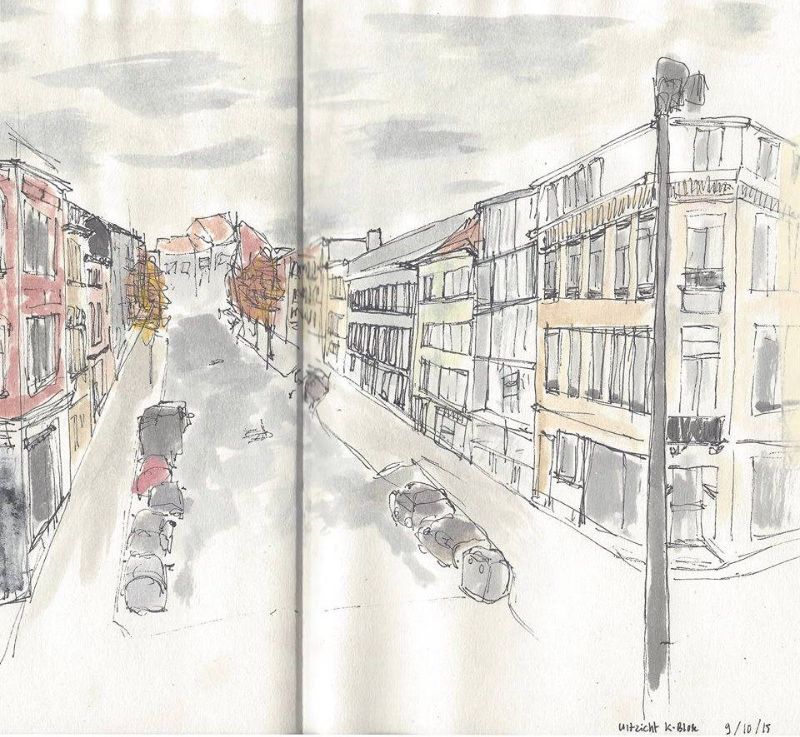 Uitzicht K-Blok 9/10/15